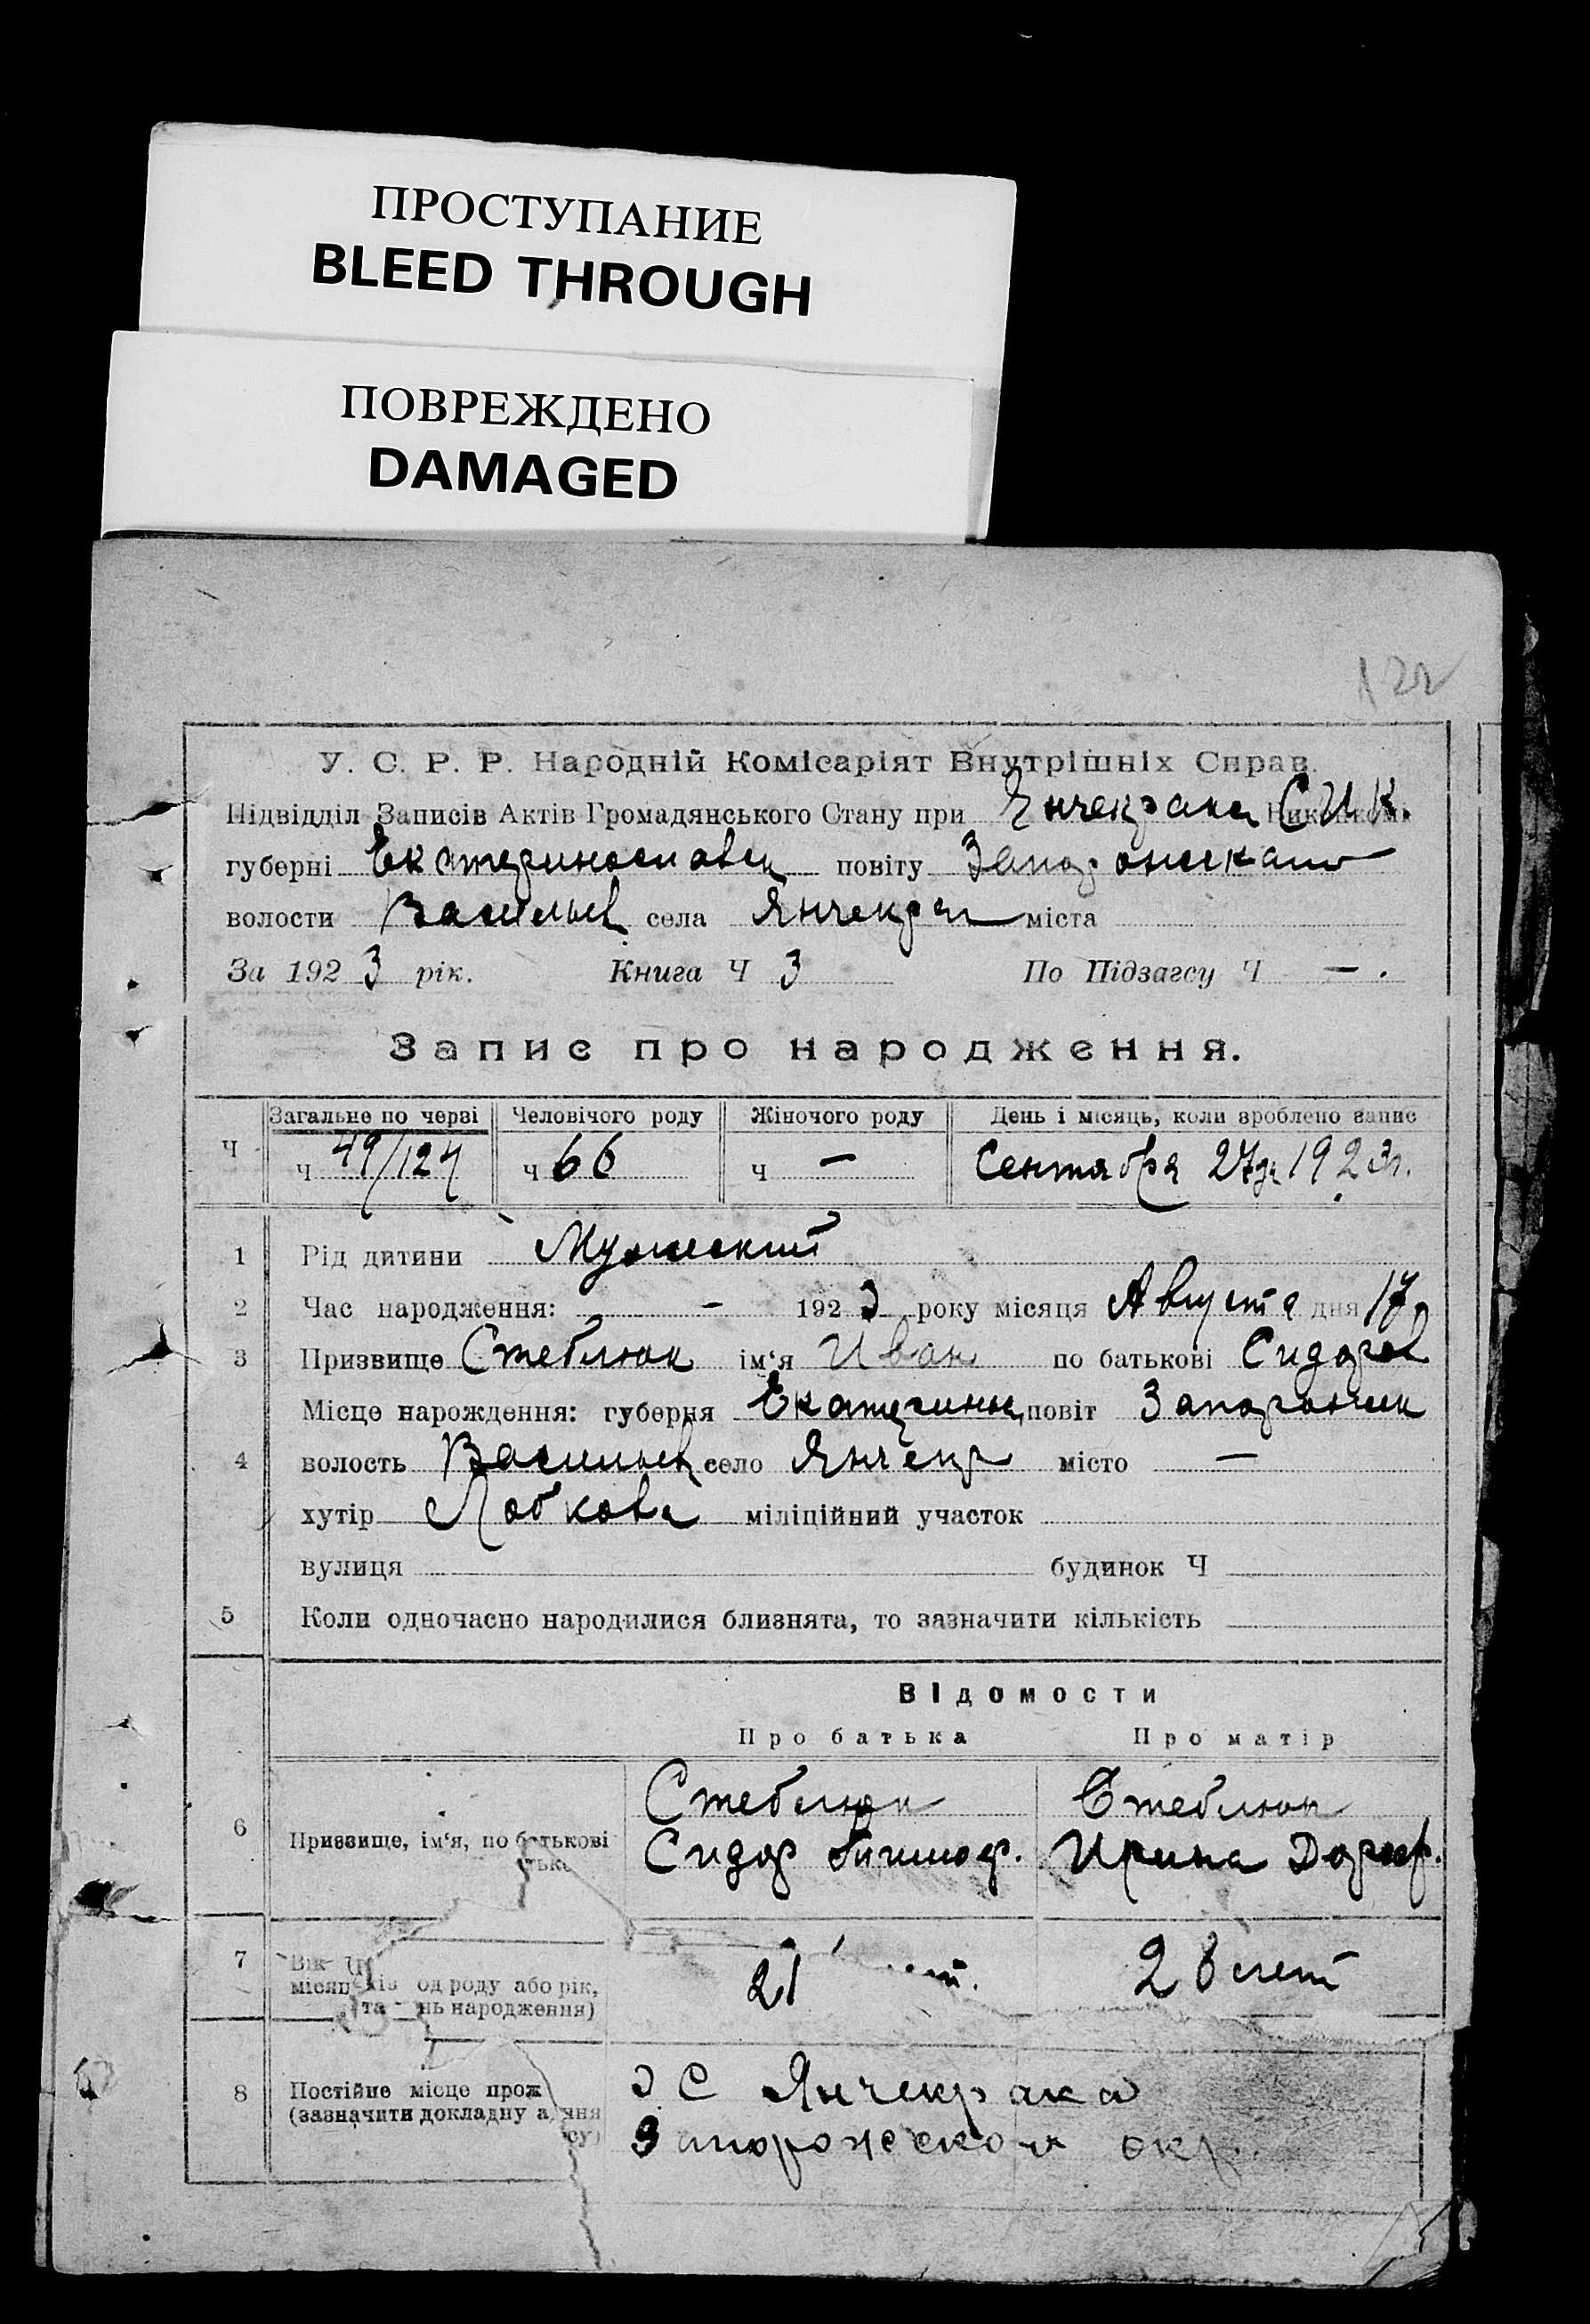 ПРОСТУПАНИЕ
BLEED THROUGH
ПОВРЕЖДЕНО
DAMAGED
122
У. С. Р. Р. Народній Комісаріят Внутрішніх Справ.
Підвідділ Записів Актів Громадянського Стану при Янчекрак С И К.
губерні Екатеринославск повіту Запорожскаго
волости Васильев села Янчекрак міста
За 192 3 рік. Книга Ч 3 По Підзагсу Ч — .
Запис про народження.
Загальне по черзі Человічого роду Жіночого роду День і місяць, коли зроблено запис
Ч ч 49/124 ч 66 ч — Сентября 27 дн 1923 г.
1 Рід дитини Мужеский
2 Час народження: - 192 3 року місяця Августа дня 17
3 Призвище Стеблюк ім‘я Иван по батькові Сидоров
Місце нарождення: губерня Екатерин повіт Запорожск
4 волость Васильев село Янчекр місто —
хутір Лобкова міліційний участок
вулиця будинок Ч
5 Коли одночасно народилися близнята, то зазначити кількість
Відомости
Про батька Про матір
Стеблюк Стеблюк
6 Призвище, ім‘я, по батькові Сидор Ирина Дороф.
7 Вік
місяц од роду або рік, 21 26 лет
та нь народження)
8 Постійне місце прож С Янчекрака
(зазначити докладну а Запорожской окр.